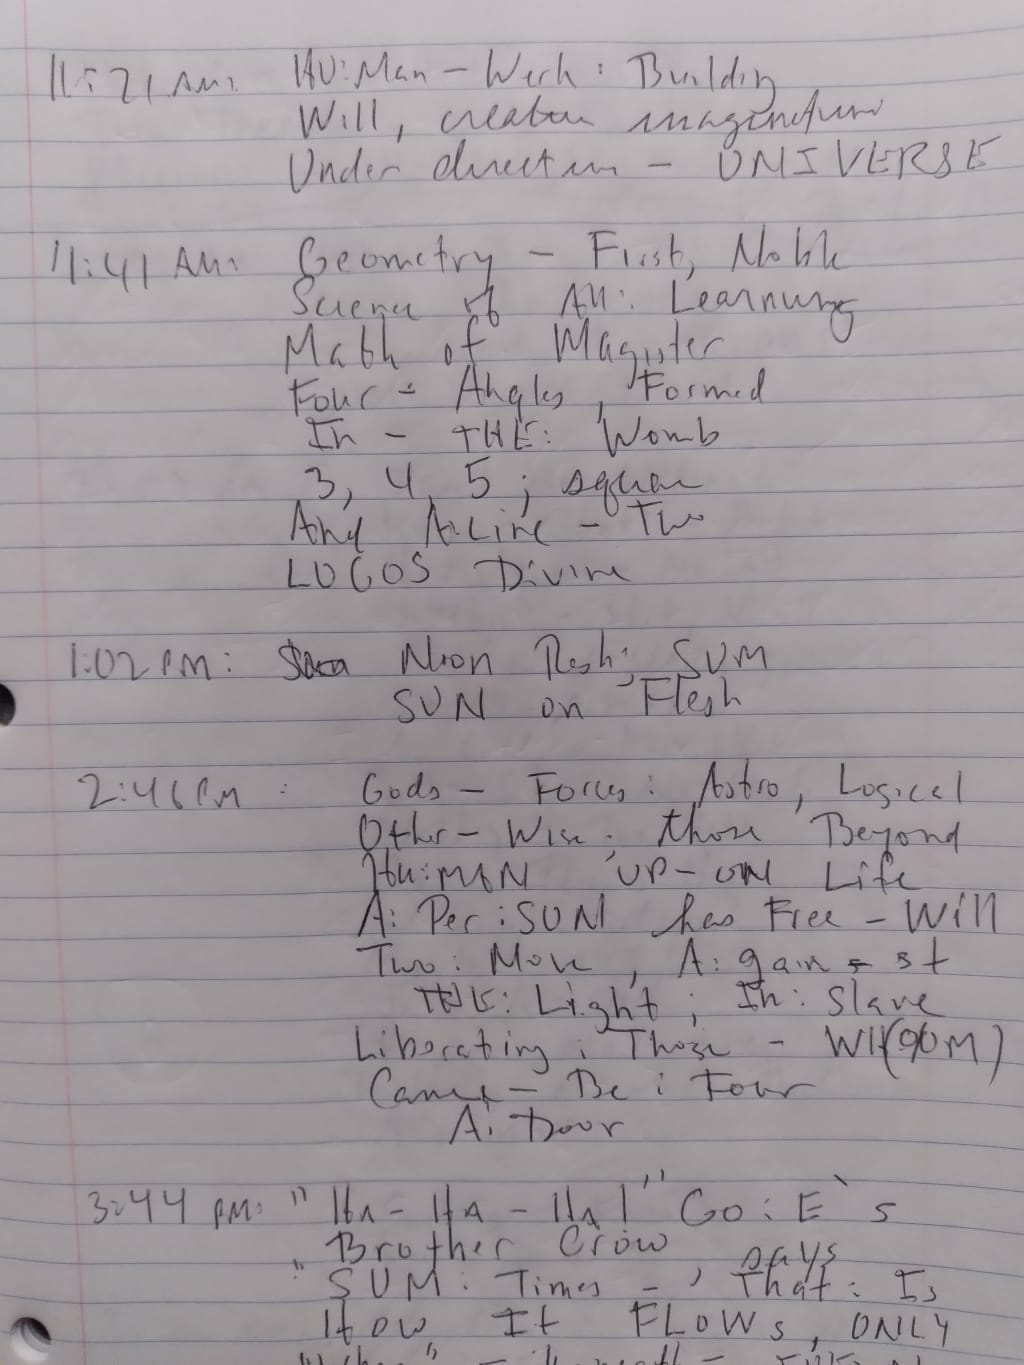 11:21 AM: HU:Man - Werk : Building
Will, creation imagination
Under direction - UNIVERSE
11:41 AM: Geometry - First, Noble
Science of All: Learning
Math of Magister
Four - Angles, Formed
In - THE: Womb
3, 4, 5 ; square
And A:Line - Two
LOGOS Divine
1:02 PM: Noon Resh; SUM
SUN on Flesh
2:46 PM : Gods - Forces : Astro, Logical
Other - Wise ; those Beyond
Hu:MAN UP-ON Life
A: Per:SUN has Free - Will
Two : Move, A: gain - st
THE: Light ; In: Slave
Liberating ; Those -
Came - Be : Four
A: Door
3:44 PM: "HA - HA - HA!" Go : E's
Brother Crow, says
"SUM: Times -, That: Is
How It FLOWs, ONLY